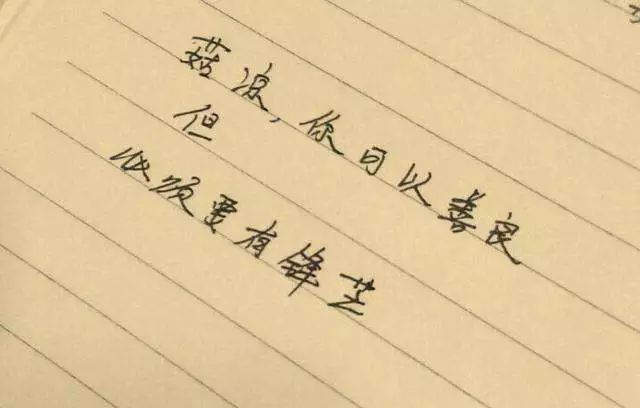 菇凉,你可以善良
但
必须要有锋芒